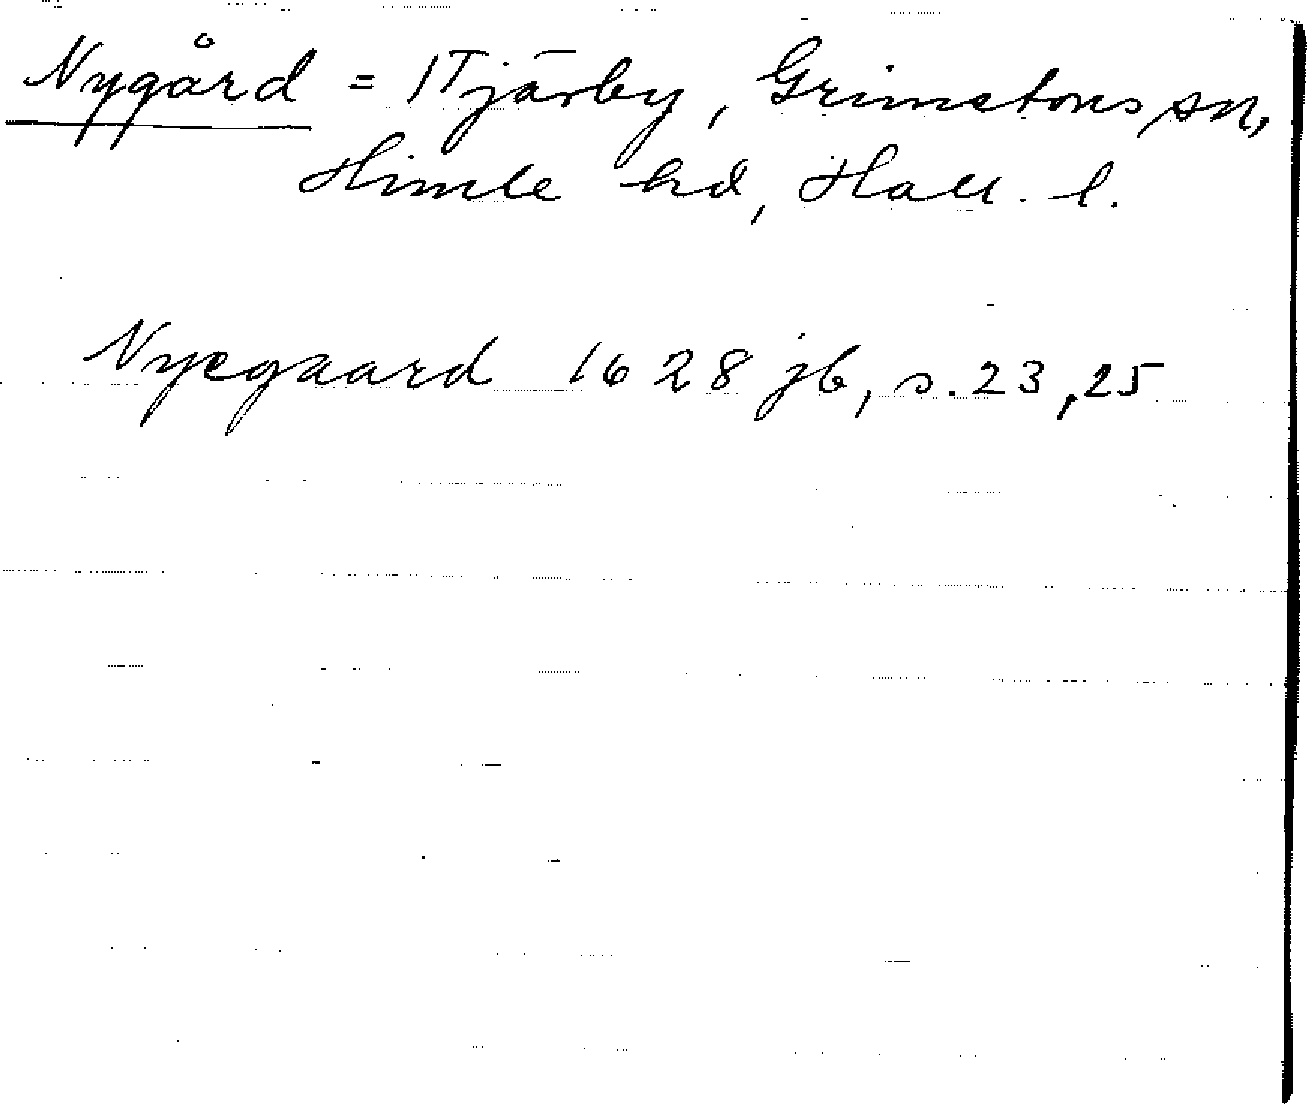 Nygård = 1 Tjärby, Grimetons sn,
Himle hd, Hall. l.
Nyegaard 1628 jb, s. 23, 25